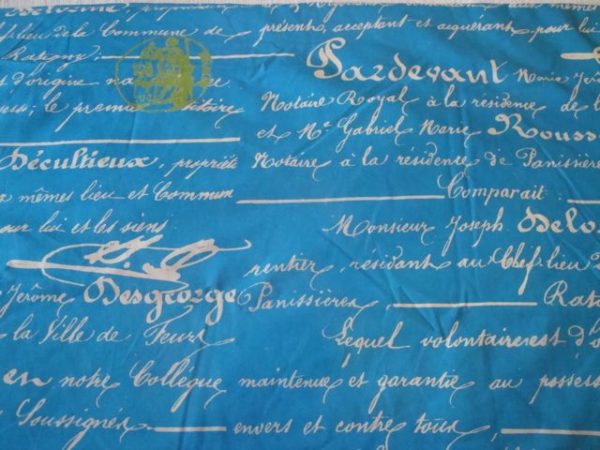 f-lieu de la Commune de
t d'origine
le premier
Décultieux, propriété
mêmes lieu et Commun
our lui et les siens
Jérôme Desgeorge
la Ville de Feurs
en notre Collègue
Soussignés
présent, acceptant et aquérant pour lui
Pardevant Marie Jér
Notaire Royal à la résidence de l
et Mr Gabriel Marie Rouss
Notaire à la résidence de Panissière
Comparait
Monsieur Joseph Delo
rentier, résidant au Chef lieu
Panissières, Rat
Lequel volontairement d'o
maintenue et garantie au possess
envers et contre tous,